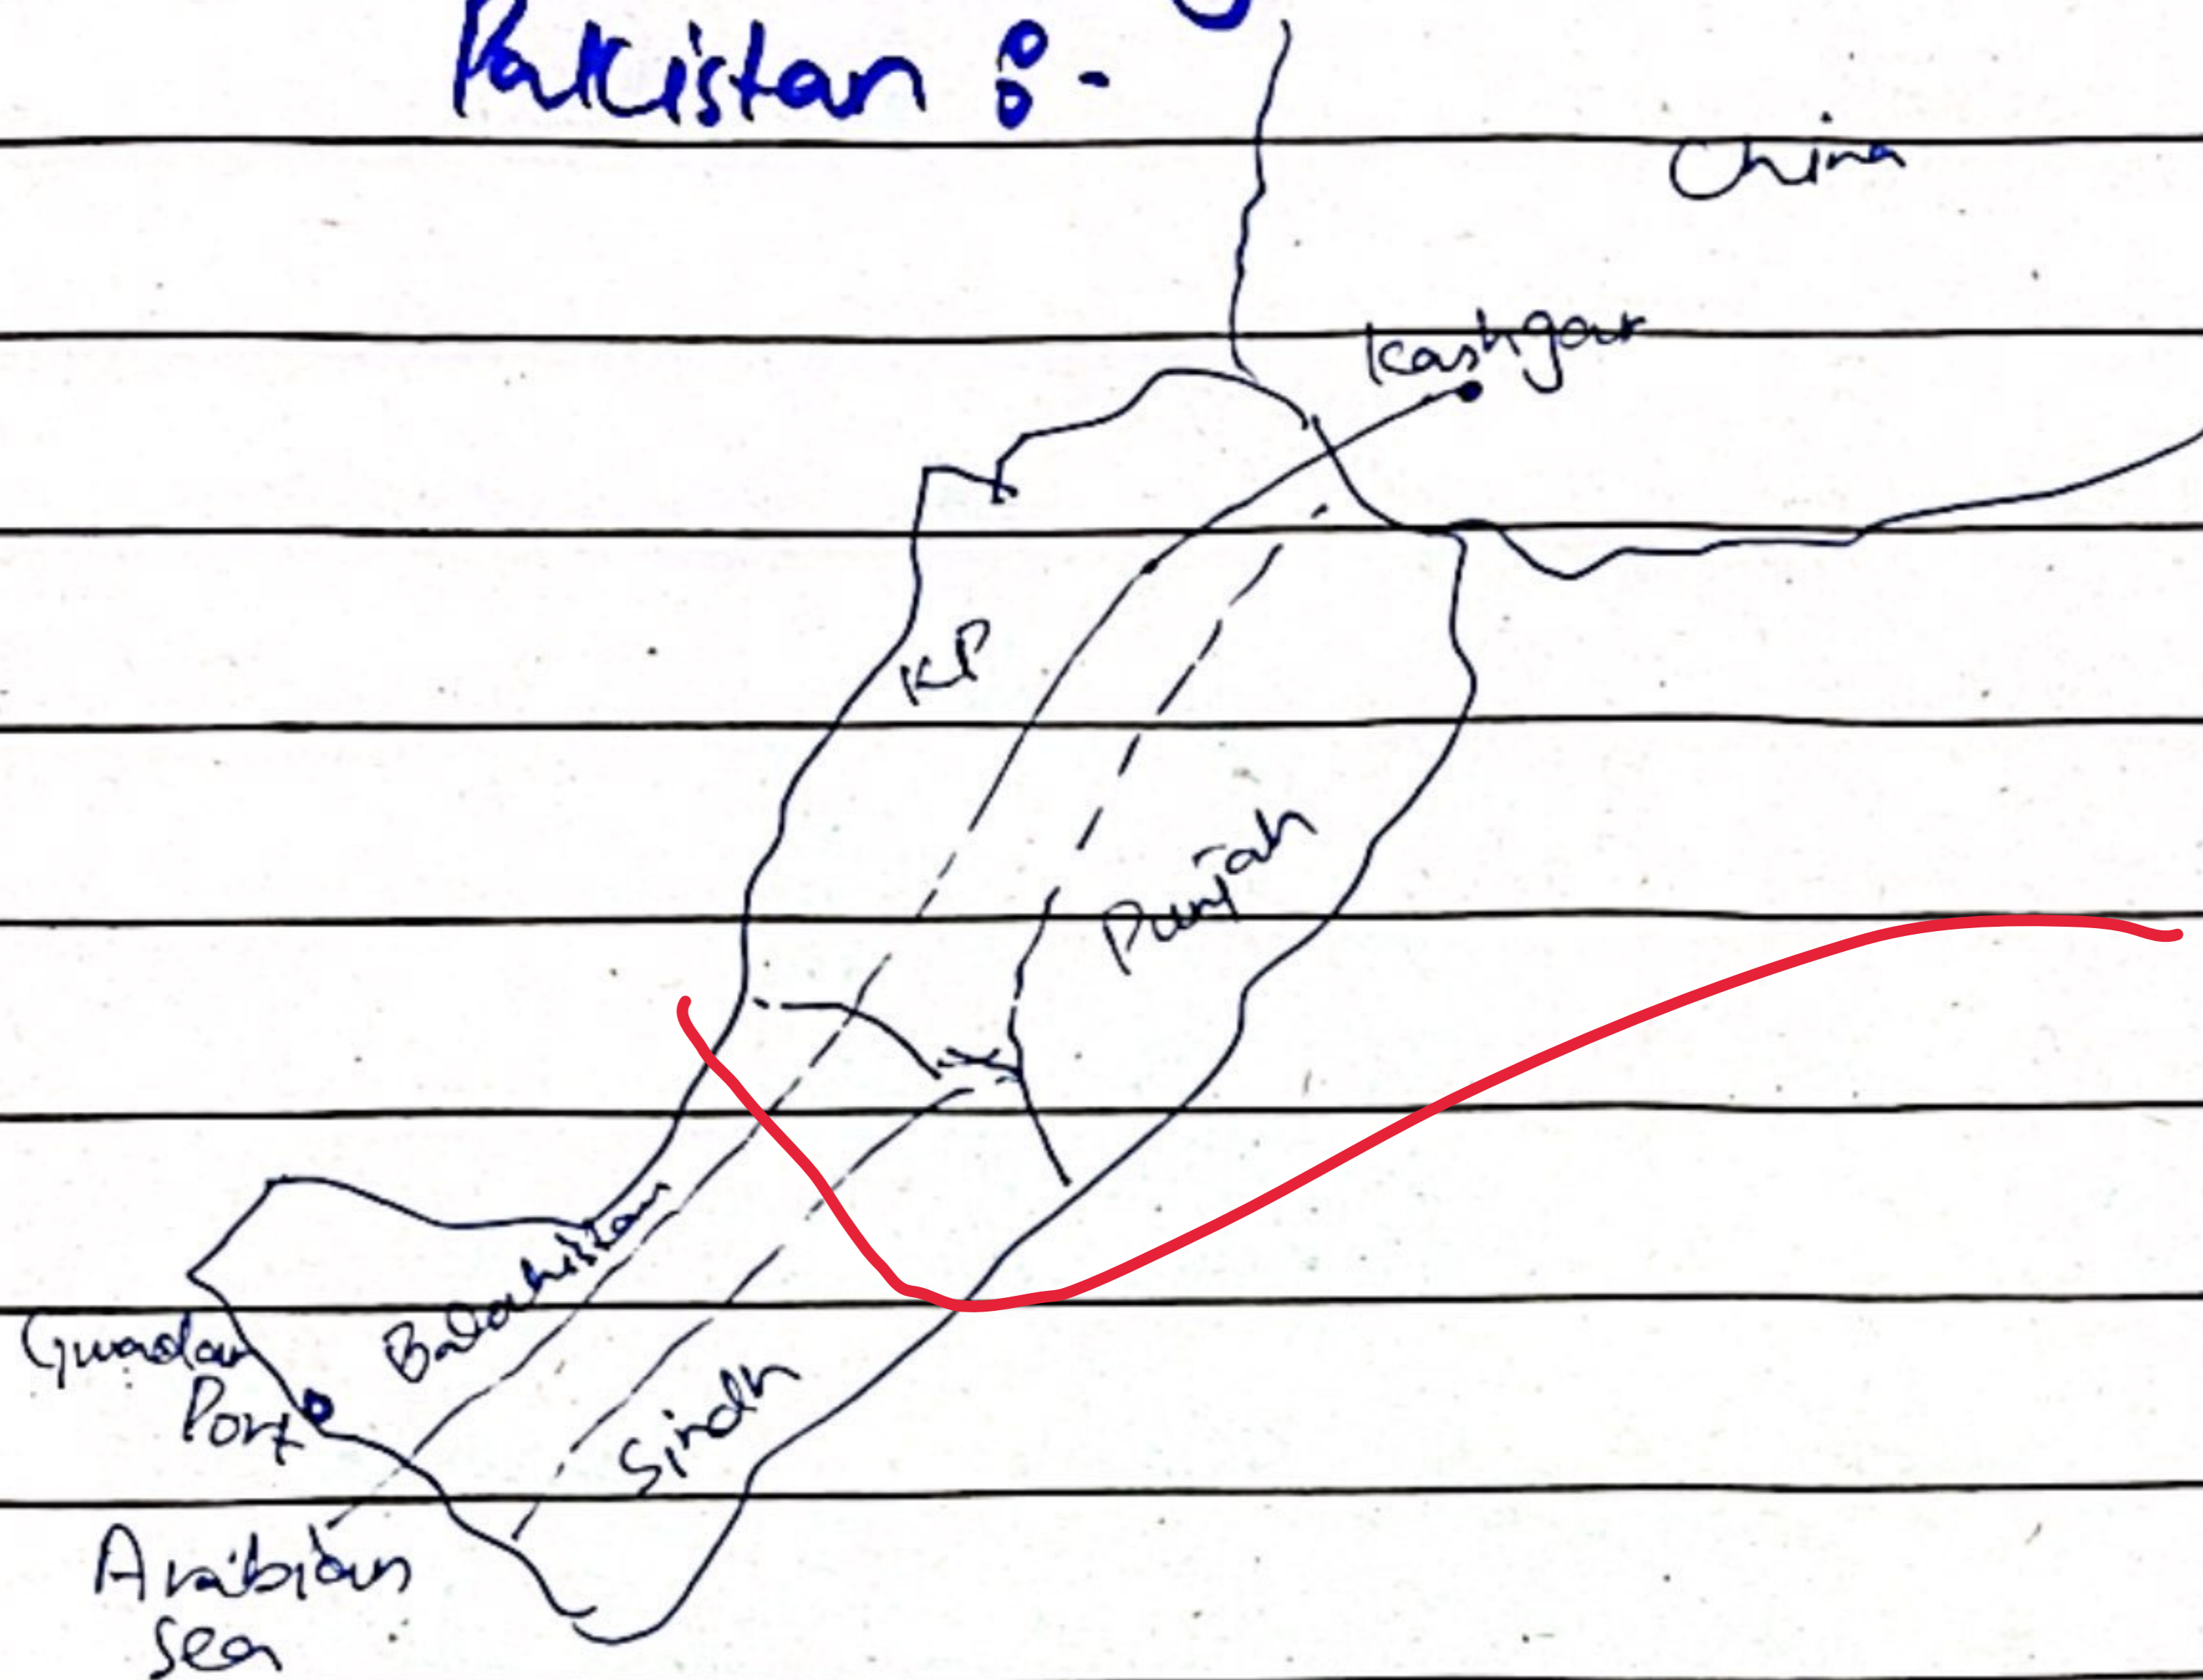 Pakistan :-
China
Kashgar
KP
Punjab
Balochistan
Gwadar
Port
Sindh
Arabian
Sea